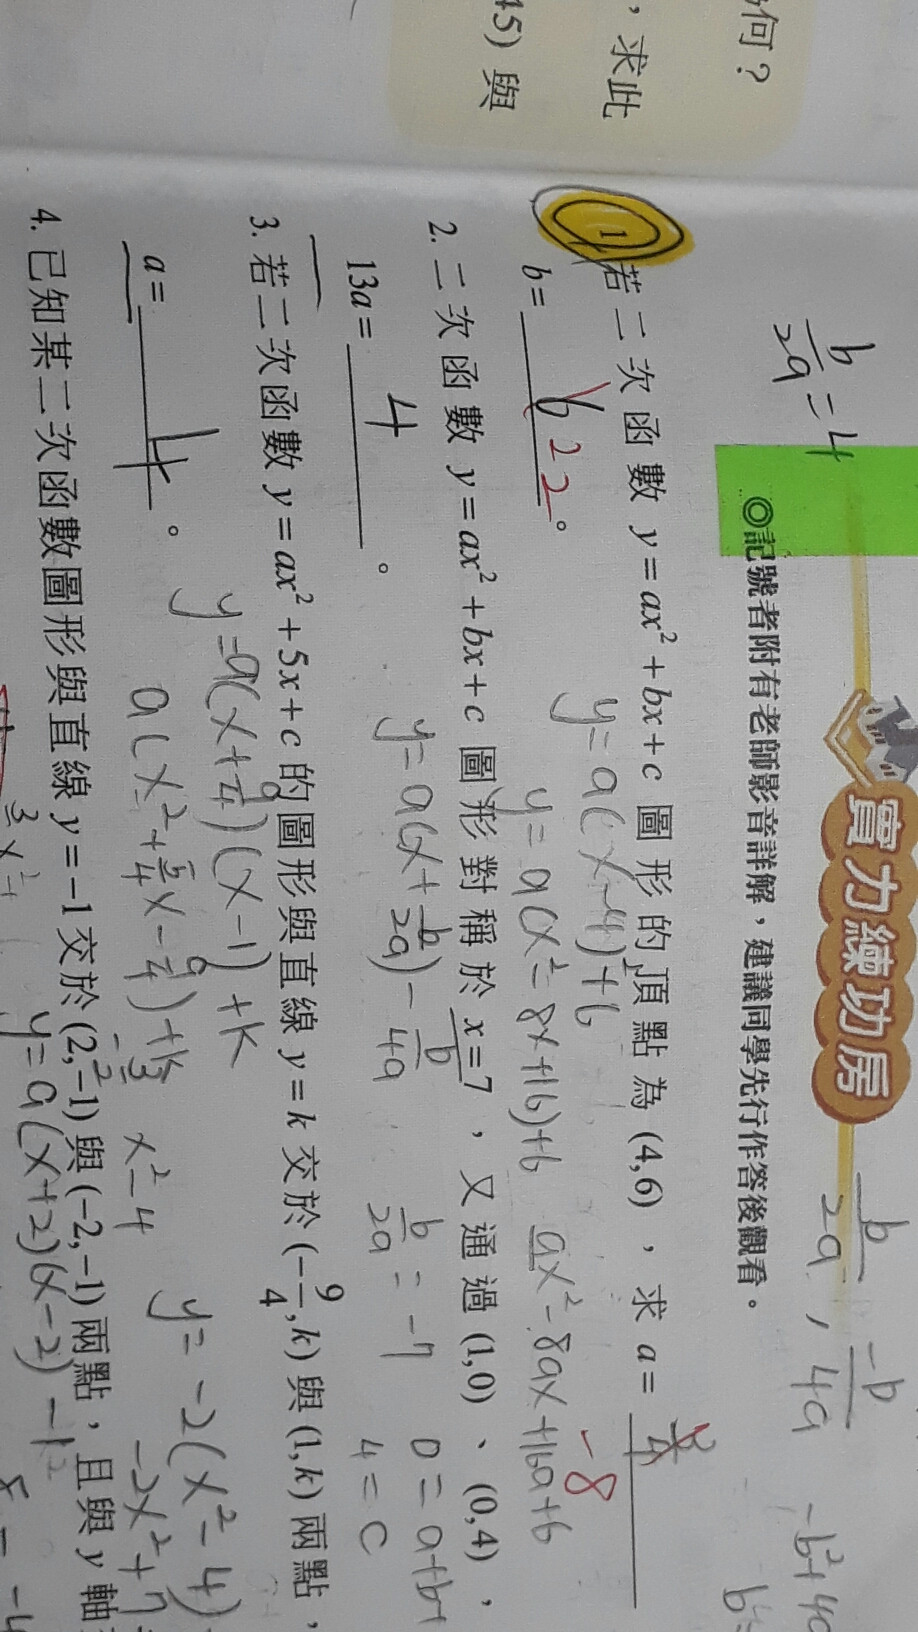 何?
,求此
45)與
實力練功房
◎記號者附有老師影音詳解,建議同學先行作答後觀看。
b/2a = 4
b/2a , -b/4a
1. 若二次函數 y=ax²+bx+c 圖形的頂點為 (4,6),求 a=
-8
b= 22 。
y=a(x-4)²+6
y=a(x²-8x+16)+6
ax²-8ax+16a+6
2. 二次函數 y=ax²+bx+c 圖形對稱於 x=7,又通過 (1,0)、(0,4),
13a= 4 。
y=a(x+b/2a)-b/4a
b/2a = -7
0=a+b+
4=c
3. 若二次函數 y=ax²+5x+c 的圖形與直線 y=k 交於 (-9/4,k) 與 (1,k) 兩點,
a= 4 。
y=a(x+9/4)(x-1)+k
a(x²+5/4x-9/4)+k
x²-4
y=-2(x²-4)
4. 已知某二次函數圖形與直線 y=-1 交於 (2,-1) 與 (-2,-1) 兩點,且與 y 軸
y=a(x+2)(x-2)-1